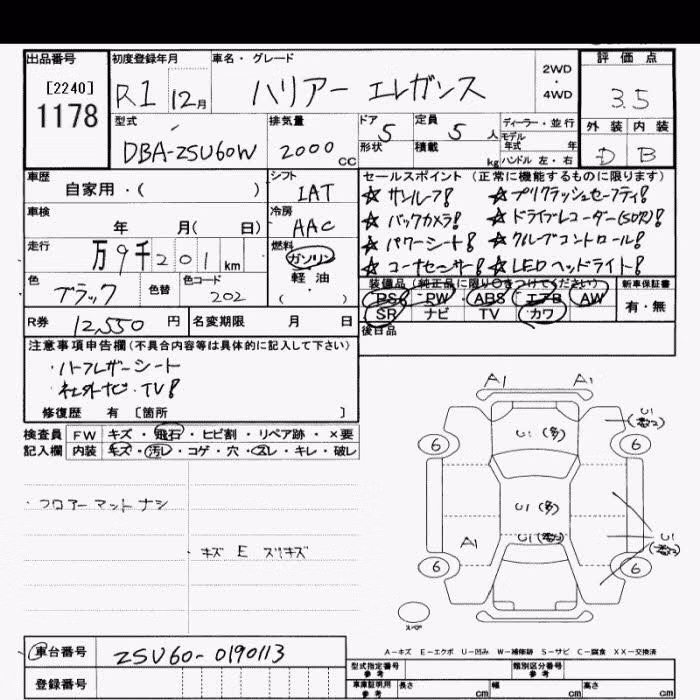 出品番号
[2240]
1178
初度登録年月
R1 12月
車名・グレード
ハリアー エレガンス
2WD
・
4WD
評価点
3.5
外装 内装
D B
型式
DBA-ZSU60W
排気量
2000 CC
ドア 5
形状
定員 5 人
積載 kg
ディーラー・並行
モデル
年式 年
ハンドル 左・右
車歴
自家用・( )
シフト
IAT
車検
年 月( 日)
冷房
AAC
走行
万9千201km
燃料
ガソリン
軽油
( ・ )
色
ブラック
色替
色コード
202
R券 12,550 円
名変期限 月 日
セールスポイント (正常に機能するものに限ります)
☆ サンルーフ! ☆ プリクラッシュセーフティ!
☆ バックカメラ! ☆ ドライブレコーダー(SDR)!
☆ パワーシート! ☆ クルーズコントロール!
☆ コーナーセンサー! ☆ LEDヘッドライト!
装備品 (純正品に限り○をつけてください)
PS PW ABS エアB AW
SR ナビ TV カワ
新車保証書
有・無
後日品
注意事項申告欄(不具合内容等は具体的に記入して下さい)
・ハーフレザーシート
・社外ナビ・TV!
修復歴 有 〔箇所 〕
検査員 FW キズ・飛石・ヒビ割・リペア跡・×要
記入欄 内装 キズ・汚レ・コゲ・穴・スレ・キレ・破レ
・フロアーマットナシ
・キズ E スリキズ
A1 A1
U1 (多)
U1
(数2)
6 6
U1 (多)
U1 (数2)
A1
U1
(数2)
6 6
スペア
A−キズ E−エクボ U−凹み W−補修跡 S−サビ C−腐食 XX−交換済
車台番号 ZSU60-0190113
登録番号
型式指定番号
参考
類別区分番号
参考
車庫証明用
参考
長さ cm 幅 cm 高さ cm